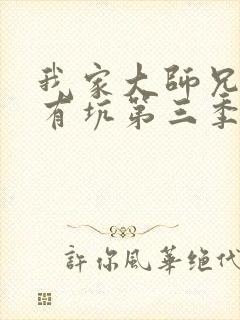 我家大師兄
有坑第三季
許你風華绝代